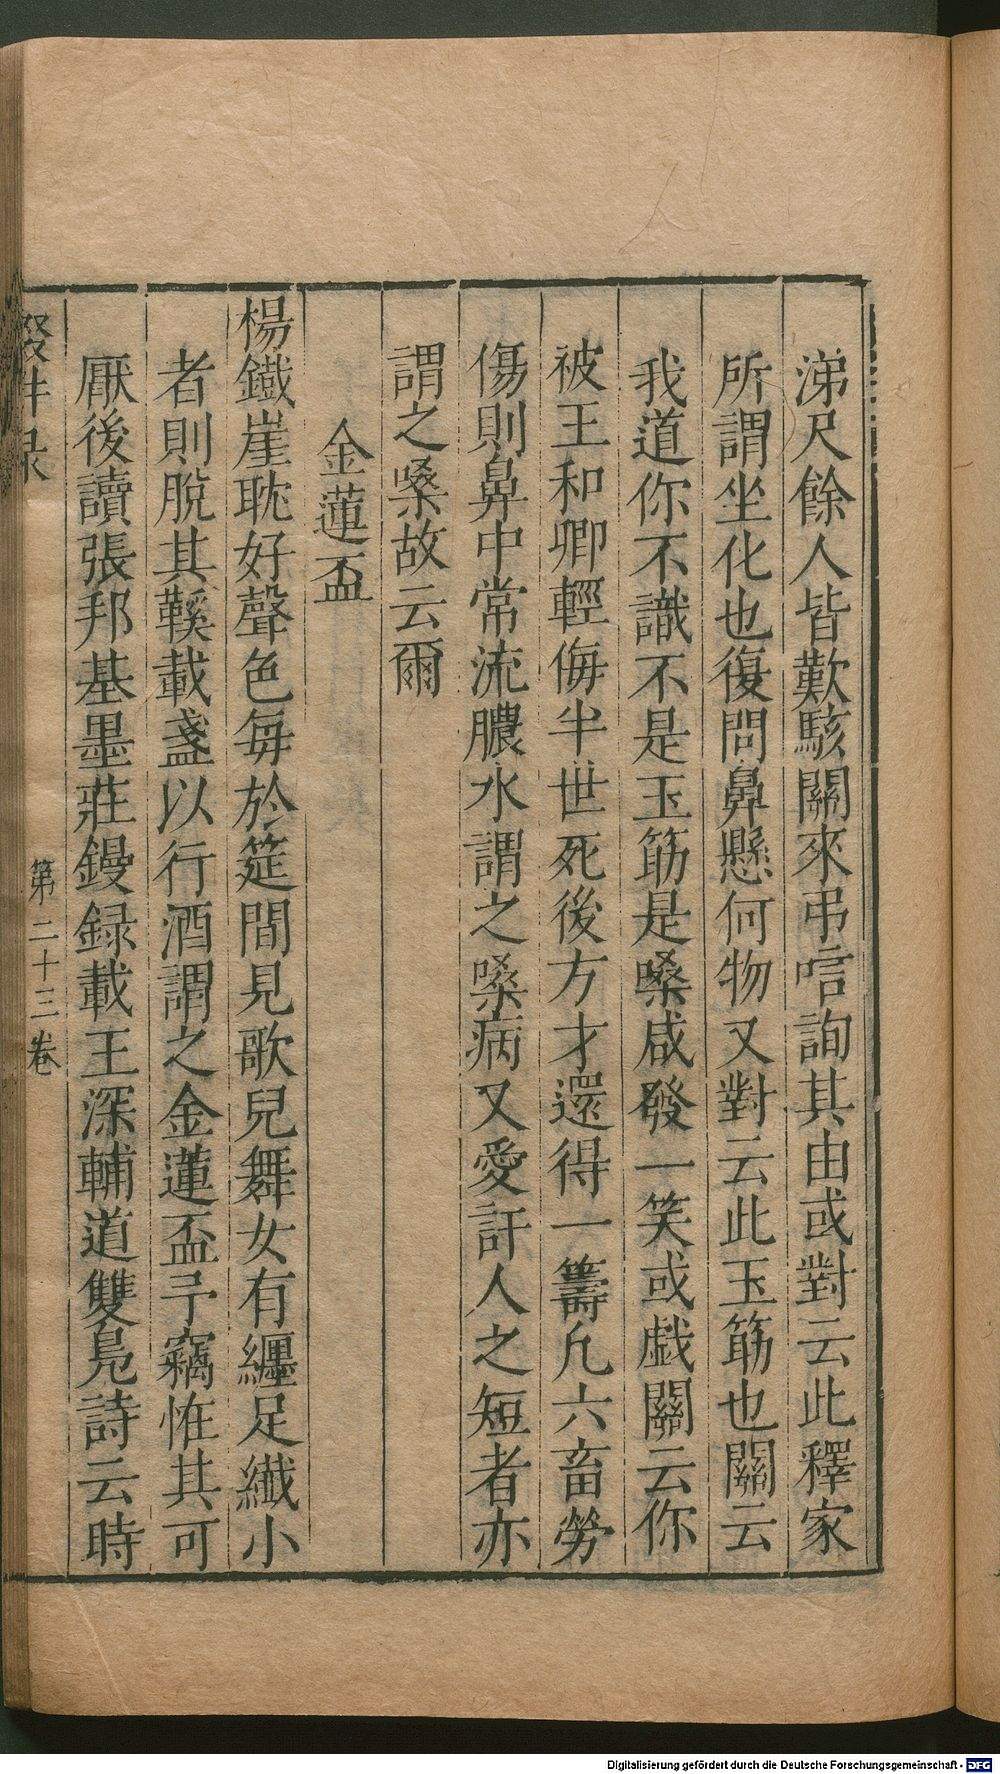 涕尺餘人皆歎駭關來弔唁詢其由或對云此釋家
所謂坐化也復問鼻懸何物又對云此玉筯也關云
我道你不識不是玉筯是嗓咸發一笑或戯關云你
被王和卿輕侮半世死後方才還得一籌凡六畜勞
傷則鼻中常流膿水謂之嗓病又愛訐人之短者亦
謂之嗓故云爾
金蓮盃
楊鐵崖耽好聲色毎於筵間見歌兒舞女有纏足纎小
者則脫其鞵載盞以行酒謂之金蓮盃予竊恠其可
厭後讀張邦基墨莊鏝録載王深輔道雙鳧詩云時
第二十三卷
Digitalisierung gefördert durch die Deutsche Forschungsgemeinschaft - DFG